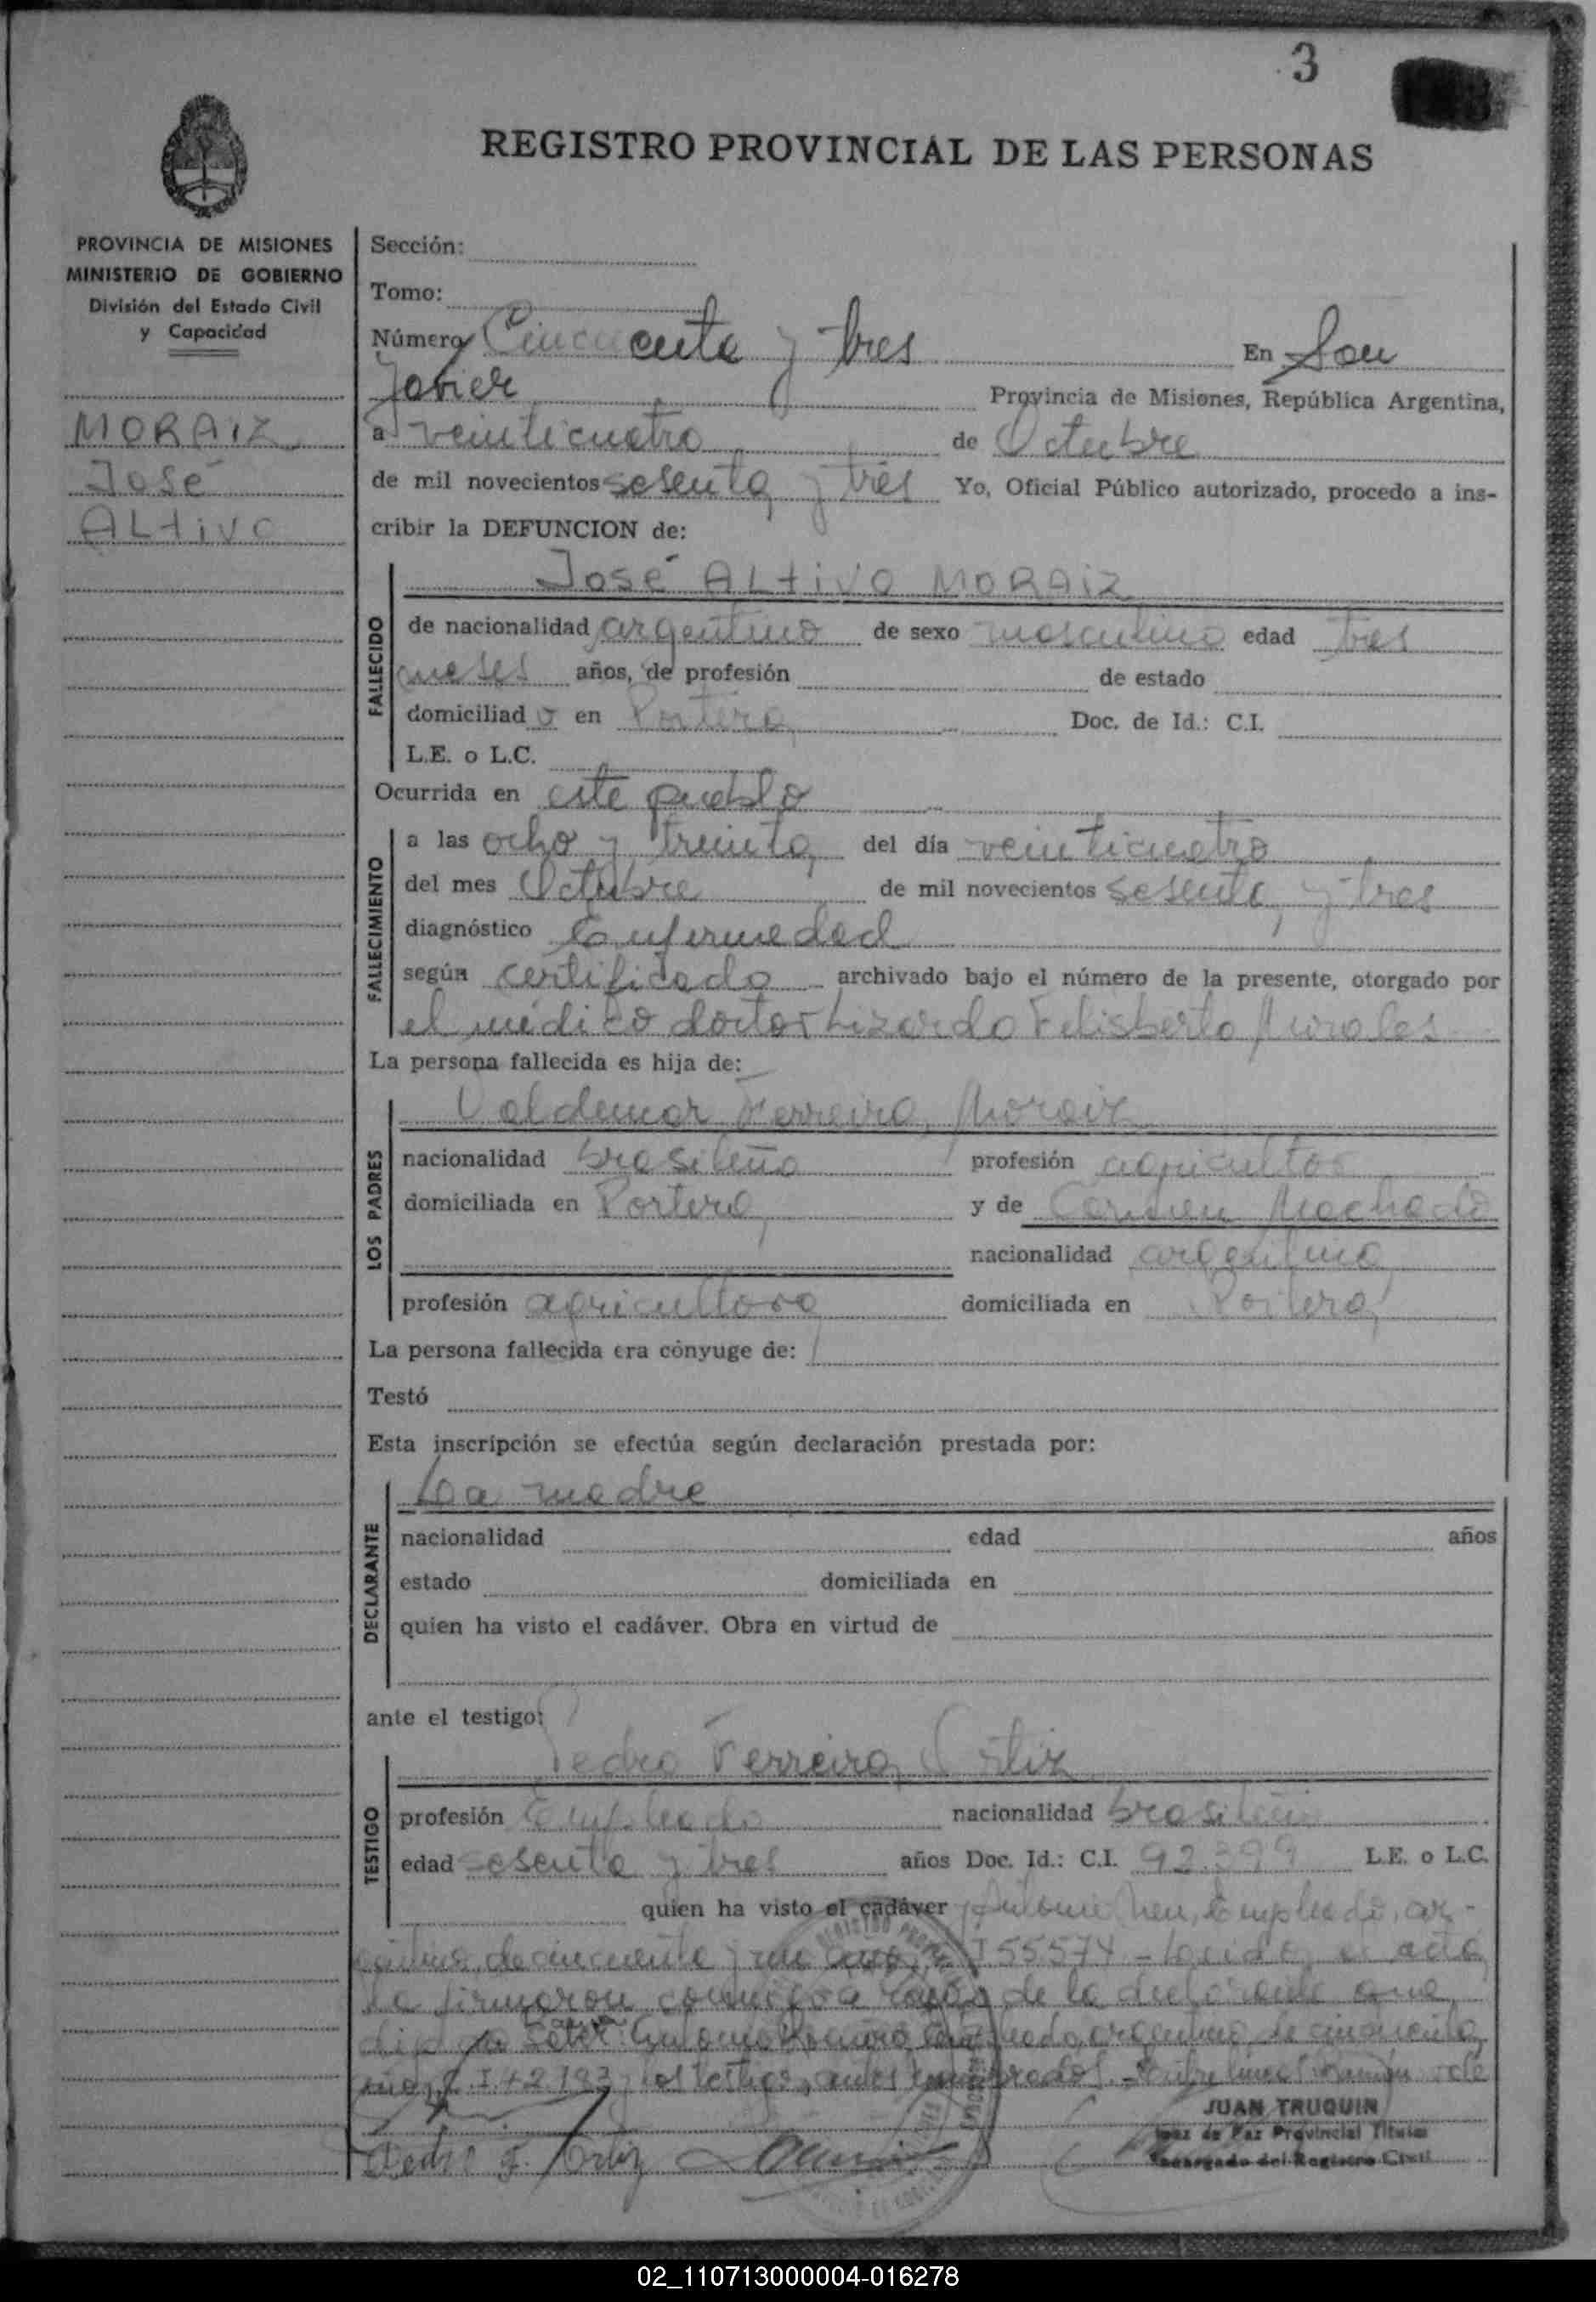 3
REGISTRO PROVINCIAL DE LAS PERSONAS
PROVINCIA DE MISIONES
MINISTERIO DE GOBIERNO
División del Estado Civil
y Capacidad
MORAIZ
José
ALtivo
Sección:
Tomo:
Número Cincuenta y tres En San
Javier Provincia de Misiones, República Argentina,
a veinticuatro de Octubre
de mil novecientos sesenta y tres Yo, Oficial Público autorizado, procedo a ins-
cribir la DEFUNCION de:
José ALtivo MORAiZ
FALLECIDO
de nacionalidad argentino de sexo masculino edad tres
meses años, de profesión de estado
domiciliad o en Portera Doc. de Id.: C.I.
L.E. o L.C.
Ocurrida en este pueblo
FALLECIMIENTO
a las ocho y treinta del día veinticuatro
del mes Octubre de mil novecientos sesenta y tres
diagnóstico Enfermedad
según certificado archivado bajo el número de la presente, otorgado por
el médico doctor Lizardo Felisberto
La persona fallecida es hija de:
LOS PADRES
Valdemar Ferreira Moraiz
nacionalidad brasileña profesión agricultor
domiciliada en Portera y de Carmen Machado
nacionalidad argentina
profesión agricultora domiciliada en Portera
La persona fallecida era cónyuge de:
Testó
Esta inscripción se efectúa según declaración prestada por:
DECLARANTE
La madre
nacionalidad edad años
estado domiciliada en
quien ha visto el cadáver. Obra en virtud de
ante el testigo:
TESTIGO
Pedro Ferreira Ortiz
profesión Empleado nacionalidad brasileña
edad sesenta y tres años Doc. Id.: C.I. 92.399 L.E. o L.C.
quien ha visto el cadáver y Antonio Empleado, ar-
de cincuenta y un 155574 - Leida el acta
la firmaron conmigo a de la declarante que
Antonio empleado, argentino de cincuenta
los testigos antes nombrados.
Pedro F. Ortiz
JUAN TRUQUIN
Juez de Paz Provincial Titular
Encargado del Registro Civil
02_110713000004-016278